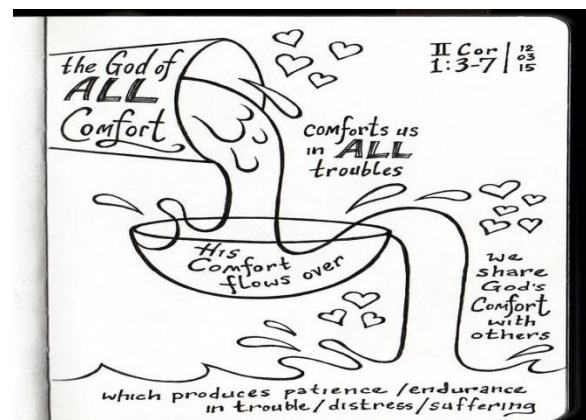 the God of
ALL
Comfort
II Cor
1:3-7
12
03
15
comforts us
in ALL
troubles
His
Comfort
flows over
we
share
God's
Comfort
with
others
which produces patience/endurance
in trouble/distress/suffering